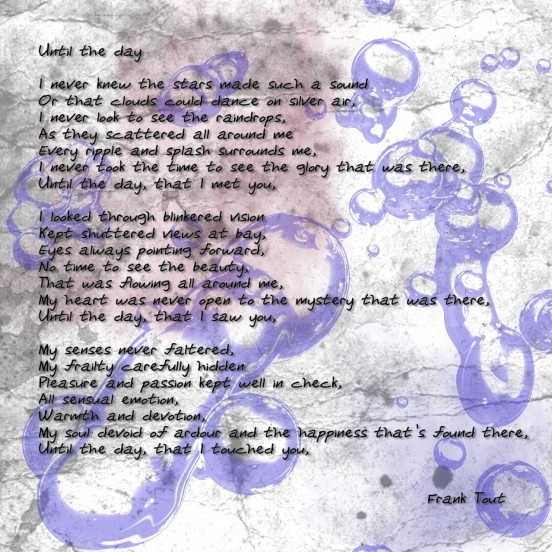 Until the day
I never knew the stars made such a sound
Or that clouds could dance on silver air,
I never look to see the raindrops,
As they scattered all around me
Every ripple and splash surrounds me,
I never took the time to see the glory that was there,
Until the day, that I met you,
I looked through blinkered vision
Kept shuttered views at bay,
Eyes always pointing forward,
No time to see the beauty,
That was flowing all around me,
My heart was never open to the mystery that was there,
Until the day, that I saw you,
My senses never faltered,
My frailty carefully hidden
Pleasure and passion kept well in check,
All sensual emotion,
Warmth and devotion,
My soul devoid of ardour and the happiness that's found there,
Until the day, that I touched you,
Frank Tout